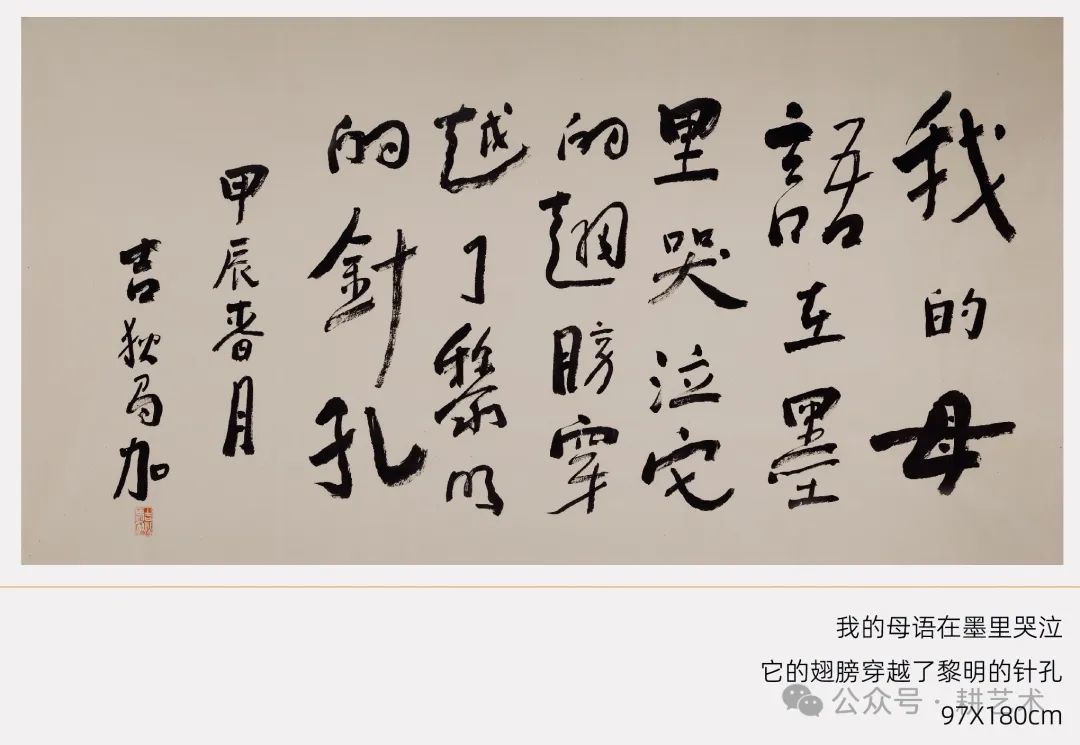 我的母
語在墨
里哭泣它
的翅膀穿
越了黎明
的針孔
甲辰春月
吉狄馬加
我的母语在墨里哭泣
它的翅膀穿越了黎明的针孔
公众号·耕艺术
97X180cm